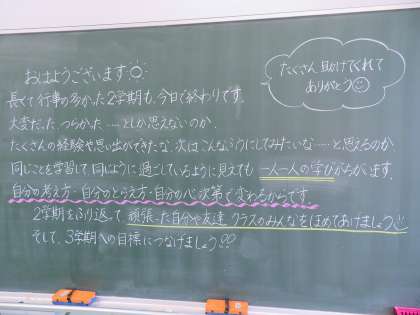 おはようございます
たくさん助けてくれて
ありがとう
長くて行事の多かった2学期も、今日で終わりです。
大変だった、つらかった……としか思えないのか、
たくさんの経験や思い出ができたな、次はこんなふうにしてみたいな…と思えるのか、
同じことを学習して、同じように過ごしているように見えても一人一人の学びがちがいます。
自分の考え方・自分のとらえ方・自分の心次第で変わるからです。
2学期をふり返って頑張った自分や友達、クラスのみんなをほめてあげましょう
そして、3学期への目標につなげましょう!!